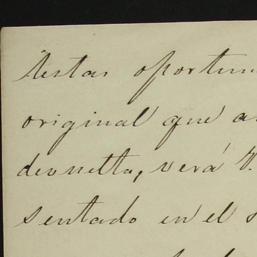 testar oportun
original que a
devuelta, verá V.
sentado en el s